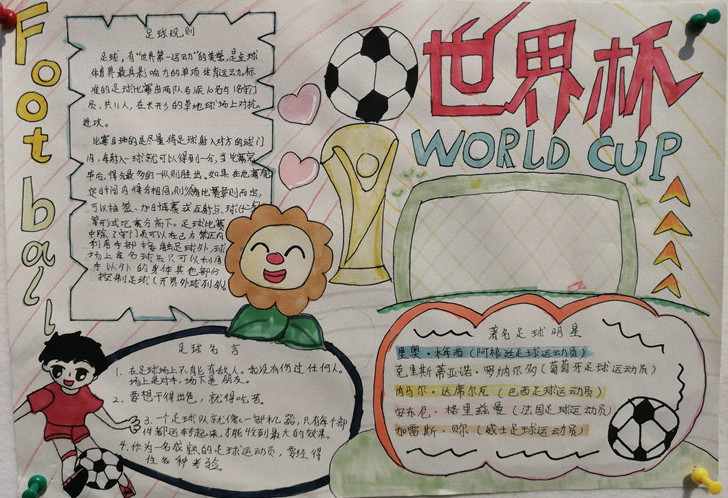 Football
世界杯
WORLD CUP
足球规则
足球，有"世界第一运动"的美誉，是全球
体育界最具影响力的单项体育运动。标
准的足球比赛由两队各派10名球员与1名守门
员，共11人，在长方形的草地球场上对抗、
进攻。
比赛目的是尽量将足球射入对方的球门
内，每射入一球就可以得到一分，当比赛完
毕后，得分最多的一队则胜出。如果在比赛规
定时间内得分相同，则须看比赛章则而定，
可以抽签、加时再赛或互射点球(十二码)
等形式比赛分高下。足球比赛
中除了守门员可以在己方禁区内
利用手部接触足球外，球
场上每名球员只可以利用
手以外的身体其他部分
控制足球(开界外球例外)
足球名言
1. 在足球场上不能有敌人。我没有伤过任何人。
场上是对手，场下是朋友。
2. 要想干得出色，就得吃苦。
3. 一个足球队就像一部机器，只有每个部
件都运转起来，才能收到最大的效果。
4. 作为一名成熟的足球运动员，需经得
住各种考验
著名足球明星
里奥·梅西(阿根廷足球运动员)
克里斯蒂亚诺·罗纳尔多(葡萄牙足球运动员)
内马尔·达席尔瓦(巴西足球运动员)
安东尼·格里兹曼(法国足球运动员)
加雷斯·贝尔(威士足球运动员)